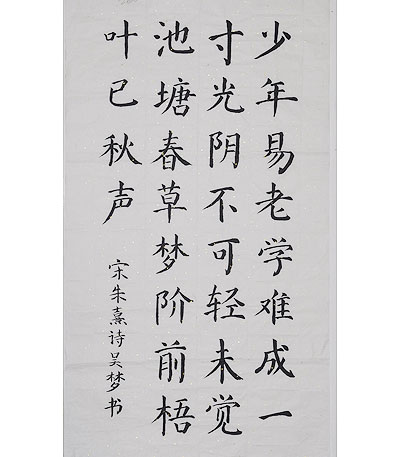 少年易老学难成一
寸光阴不可轻未觉
池塘春草梦阶前梧
叶已秋声
宋朱熹诗吴梦书